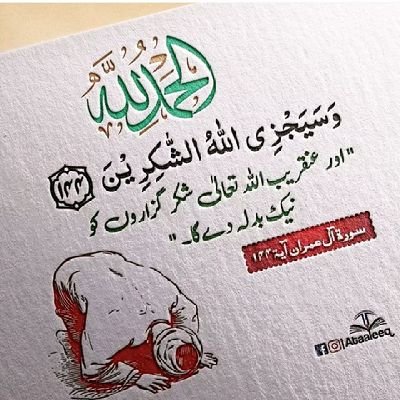 الحمد لله
وَسَيَجْزِى اللّٰهُ الشّٰكِرِيْنَ ﴿١٤٤﴾
"اور عنقریب اللہ تعالیٰ شکر گزاروں کو
نیک بدلہ دے گا۔"
سورة آل عمران آیة ۱۴۴
Ataaleeq